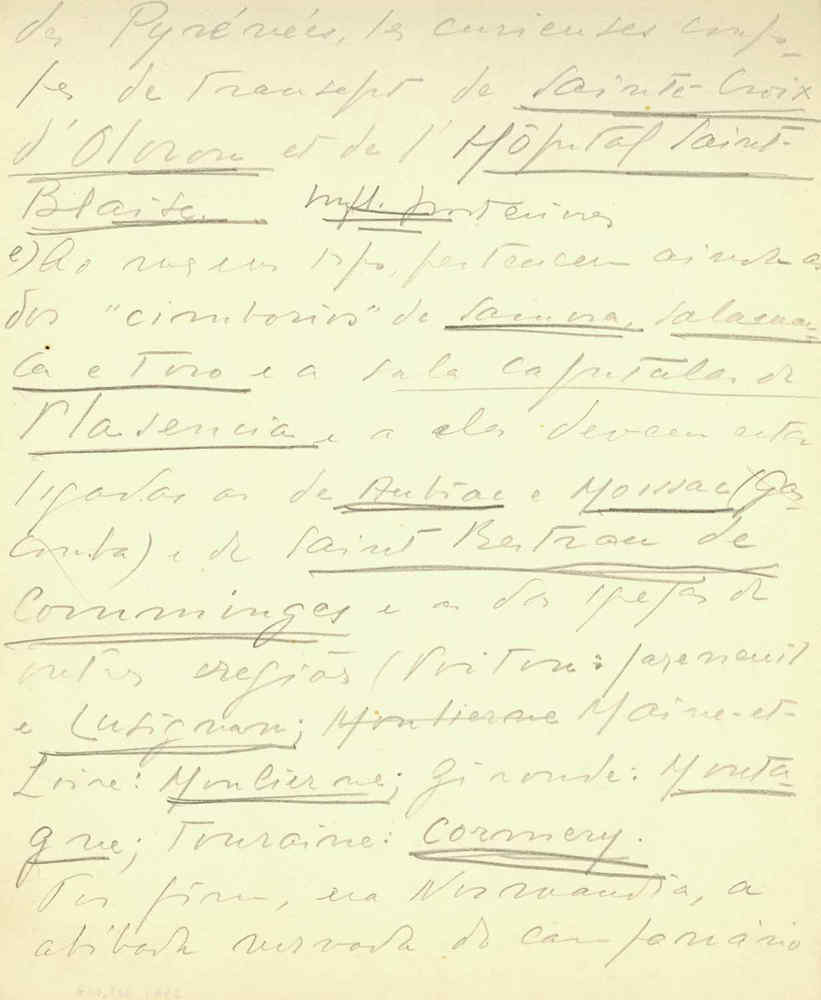 des Pyrénées, les curieuses coupo-
les de transept de Sainte-Croix
d'Oloron et de l'Hôpital Saint-
Blaise.
e) Ao mesmo tipo, pertencem ainda as
dos "cimborios" de Samora, Salaman-
ca e Toro e a sala capitular de
Plasencia e a elas devem estar
ligadas as de Aubiac e Moissac (Gas-
conha) e de Saint Bertran de
Comminges e a das igrejas de
outras regiões (Poitou: Jazeneuil
e Lusignan; Moulierne Maine-et-
Loire: Moulierne; Gironde: Monta-
gne; Touraine: Cormery.
Por fim, na Normandia, a
abóbada nervada do campanário